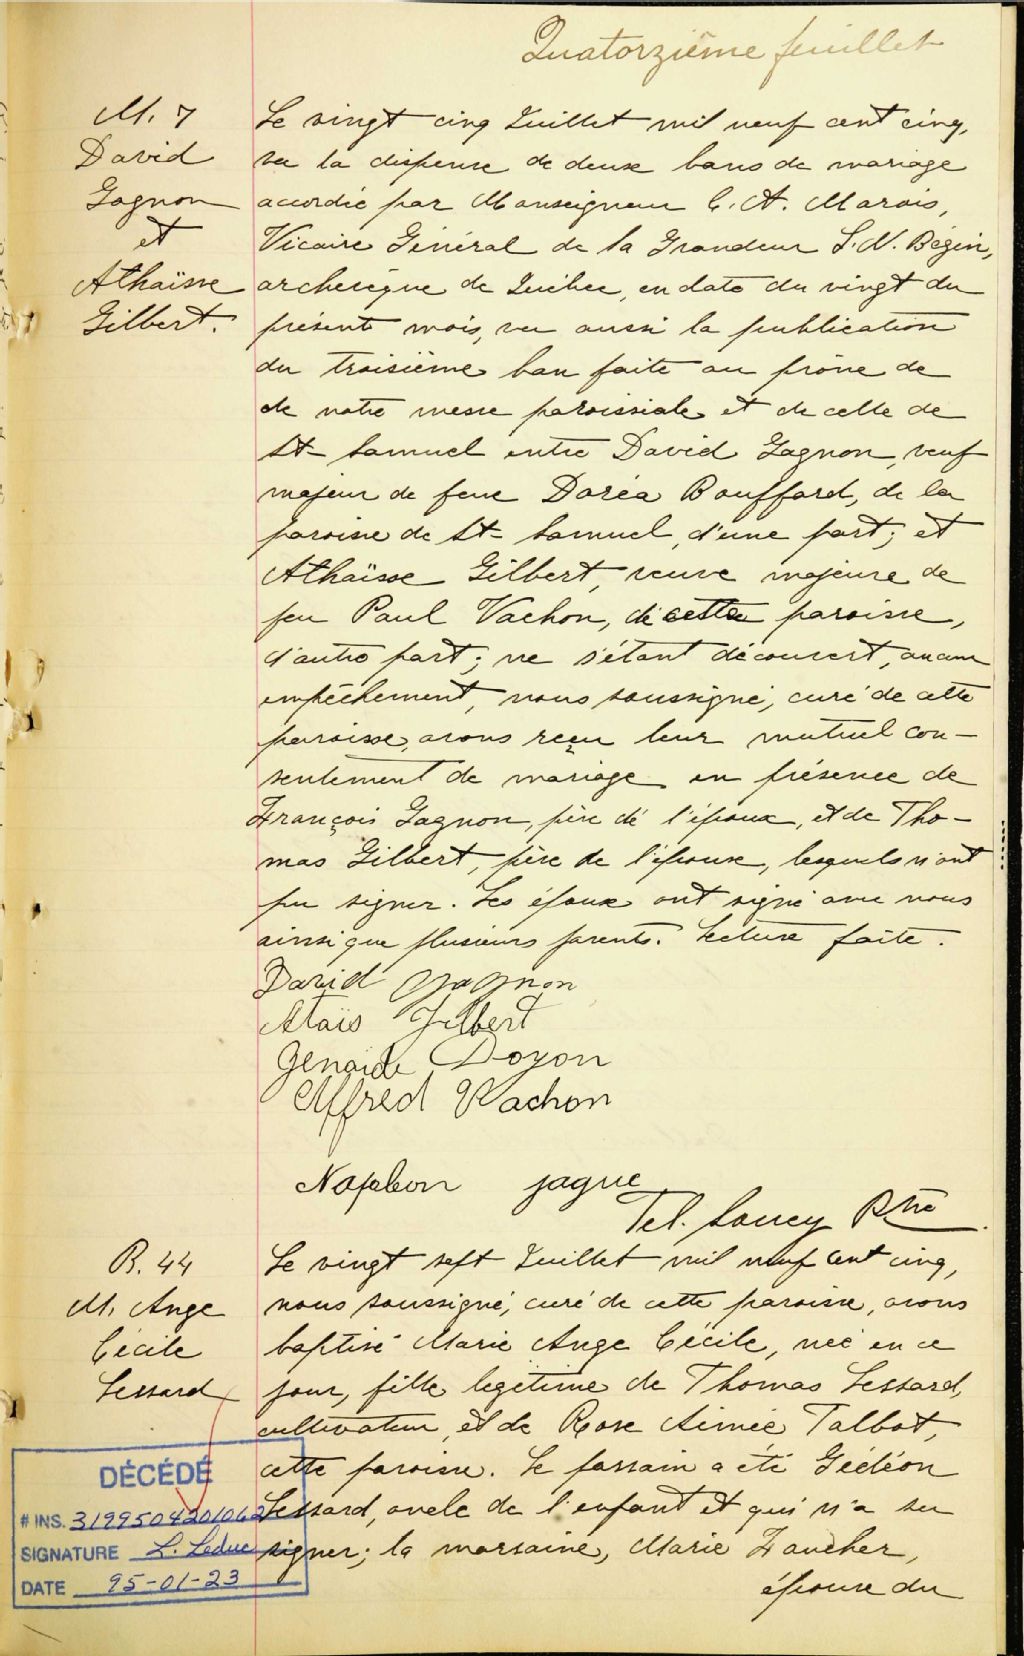 Quatorzième feuillet
M. 7
David
Gagnon
et
Athaïsse
Gilbert.
Le vingt cinq Juillet mil neuf cent cinq,
vu la dispense de deux bans de mariage
accordée par Monseigneur C. A. Marois,
Vicaire Général de Sa Grandeur L. N. Bégin,
archevêque de Québec, en date du vingt du
présent mois, vu aussi la publication
du troisième ban faite au prône de
de notre messe paroissiale et de celle de
St Samuel entre David Gagnon, veuf
majeur de feue Doréa Bouffard, de la
paroisse de St Samuel, d'une part; et
Athaïsse Gilbert, veuve majeure de
feu Paul Vachon, de cette paroisse,
d'autre part; ne s'étant découvert, aucun
empêchement, nous soussigné, curé de cette
paroisse, avons reçu leur mutuel con-
sentement de mariage en présence de
François Gagnon, père de l'époux, et de Tho-
mas Gilbert, père de l'épouse, lesquels n'ont
pu signer. Les époux ont signé avec nous
ainsi que plusieurs parents. Lecture faite.
David Gagnon
Ataïs Gilbert
Genaide Doyon
Alffred Vachon
Napoleon gagne
Tel. Soucy Ptre
R. 44
M. Ange
Cécile
Lessard
Le vingt sept Juillet mil neuf cent cinq,
nous soussigné, curé de cette paroisse, avons
baptisé Marie Ange Cécile, née en ce
jour, fille légitime de Thomas Lessard,
cultivateur, et de Rose Aimée Talbot,
cette paroisse. Le parrain a été Gédéon
Lessard, oncle de l'enfant et qui n'a su
signer; la marraine, Marie Faucher,
épouse du
DÉCÉDÉ
# INS. 3199504201062
SIGNATURE L. Leduc
DATE 95-01-23